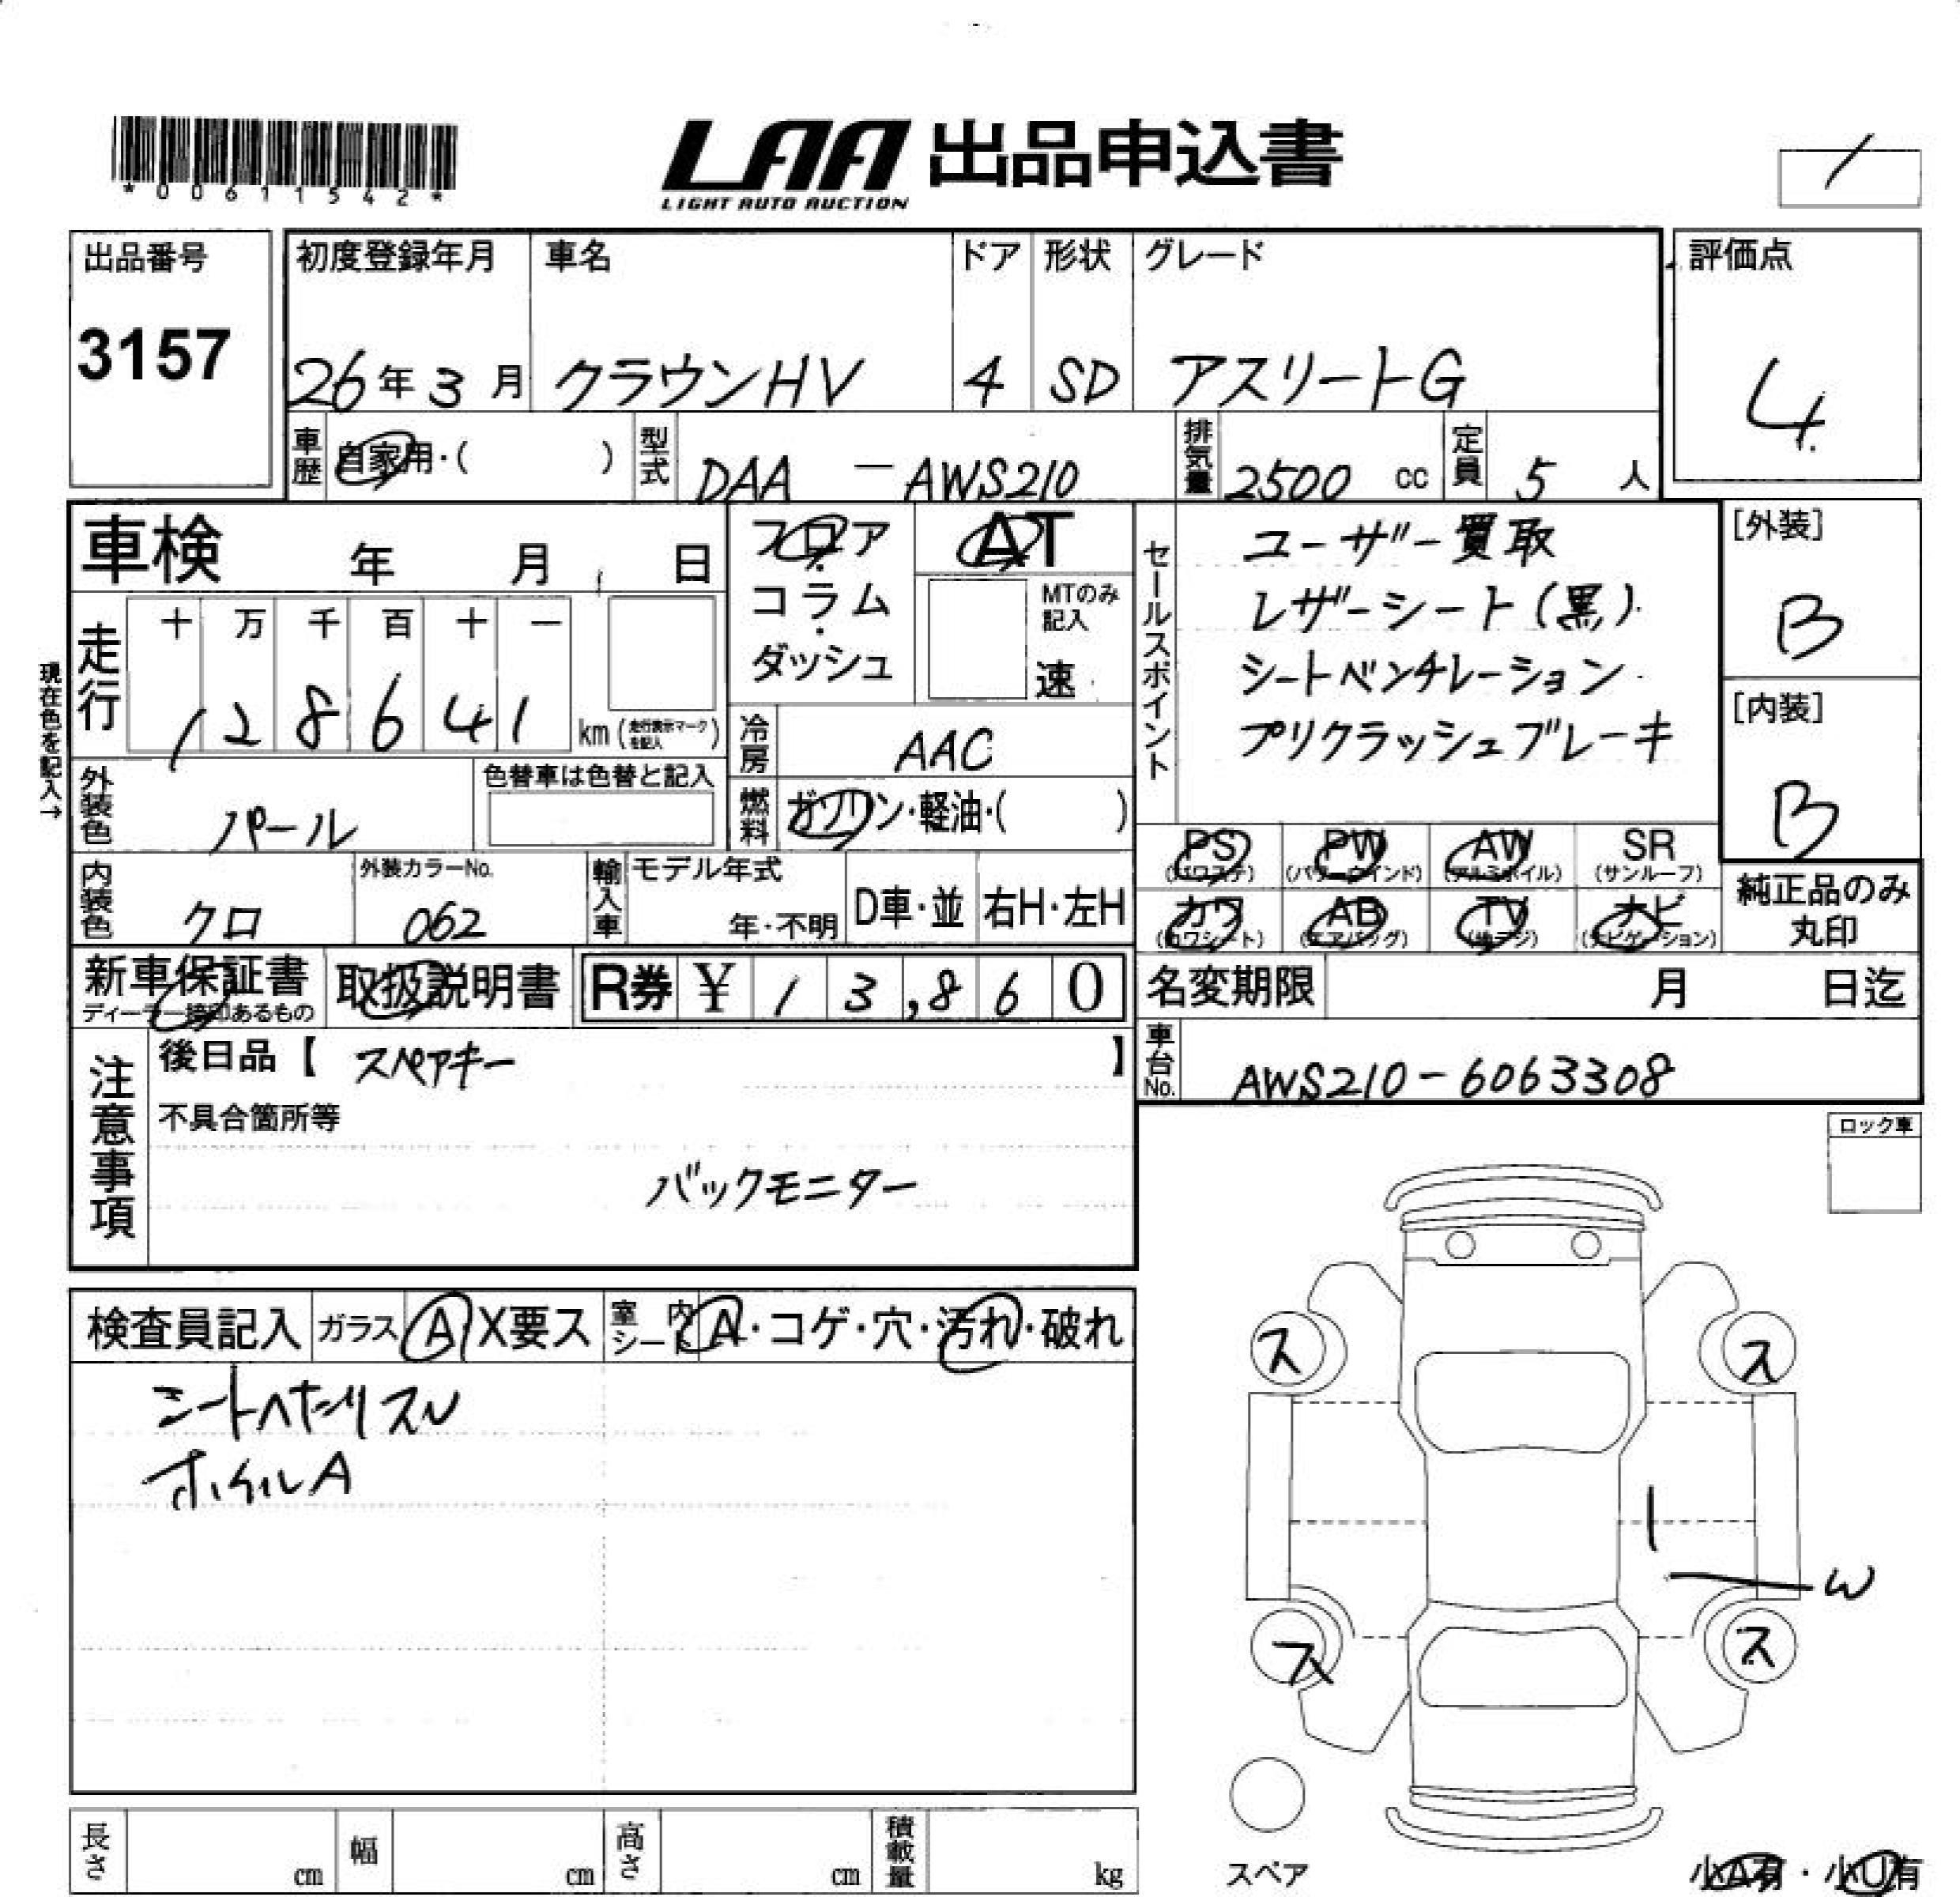 *00611542*
LAA 出品申込書
LIGHT AUTO AUCTION
出品番号
3157
初度登録年月 車名 ドア 形状 グレード 評価点
26年3月 クラウンHV 4 SD アスリートG 4
車歴 自家用・( ) 型式 DAA - AWS210 排気量 2500 cc 定員 5 人
車検 年 月 日
フロア・コラム・ダッシュ
AT
MTのみ記入
速
セールスポイント
ユーザー買取
レザーシート(黒)
シートベンチレーション
プリクラッシュブレーキ
[外装]
B
[内装]
B
現在色を記入→
走行 十 万 千 百 十 一
1 2 8 6 4 1 km(走行表示マークを記入)
冷房 AAC
外装色 パール 色替車は色替と記入
燃料 ガソリン・軽油・( )
内装色 クロ 外装カラーNo. 062
輸入車 モデル年式 年・不明 D車・並 右H・左H
PS (パワステ) PW (パワーウインド) AW (アルミホイル) SR (サンルーフ)
カワ (カワシート) AB (エアバッグ) TV (テレビ) ナビ (ナビゲーション)
純正品のみ
丸印
新車保証書 ディーラー捺印あるもの 取扱説明書 R券 ¥ 1 3,8 6 0
名変期限 月 日迄
車台No. AWS210-6063308
注意事項
後日品【 スペアキー 】
不具合箇所等
バックモニター
ロック車
検査員記入 ガラス A X要ス 室内シート A・コゲ・穴・汚れ・破れ
シートヘたりスレ
ホイルA
ス ス
W
ス ス
スペア
長さ cm 幅 cm 高さ cm 積載量 kg
小A有・小U有